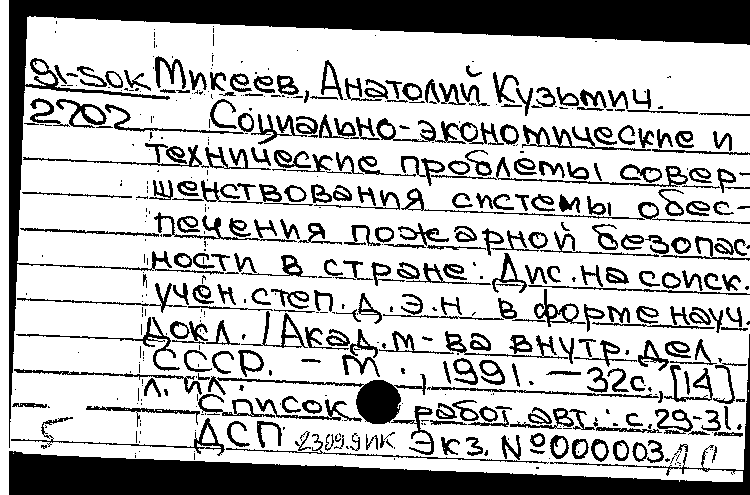 91-5ок Микеев, Анатолий Кузьмич.
2702 Социально-экономические и
технические проблемы совер-
шенствования системы обес-
печения пожарной безопас
ности в стране: Дис. на соиск.
учен. степ. д. э. н. в форме науч.
докл. / Акад. м-ва внутр. дел.
СССР. - М., 1991. - 32с., [14]
л. ил.
Список работ авт.: с. 29-31.
5 ДСП Экз. №000003.